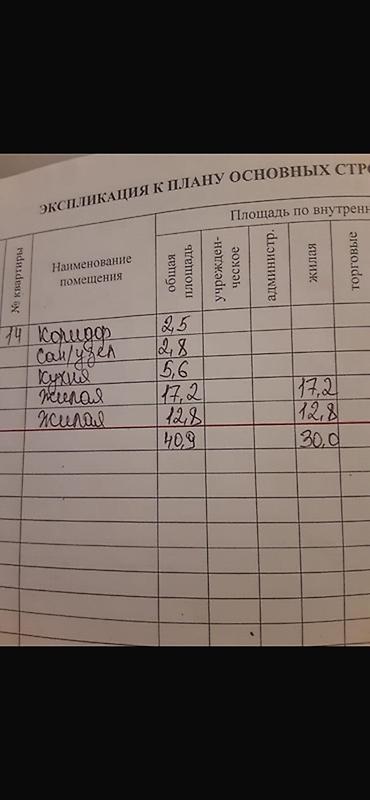 ЭКСПЛИКАЦИЯ К ПЛАНУ ОСНОВНЫХ СТРО
Площадь по внутрен
№ квартиры
Наименование
помещения
общая
площадь
учрежден-
ческое
администр.
жилая
торговые
14 Коридор 2,5
Сан/узел 2,8
Кухня 5,6
Жилая 17,2 17,2
Жилая 12,8 12,8
40,9 30,0